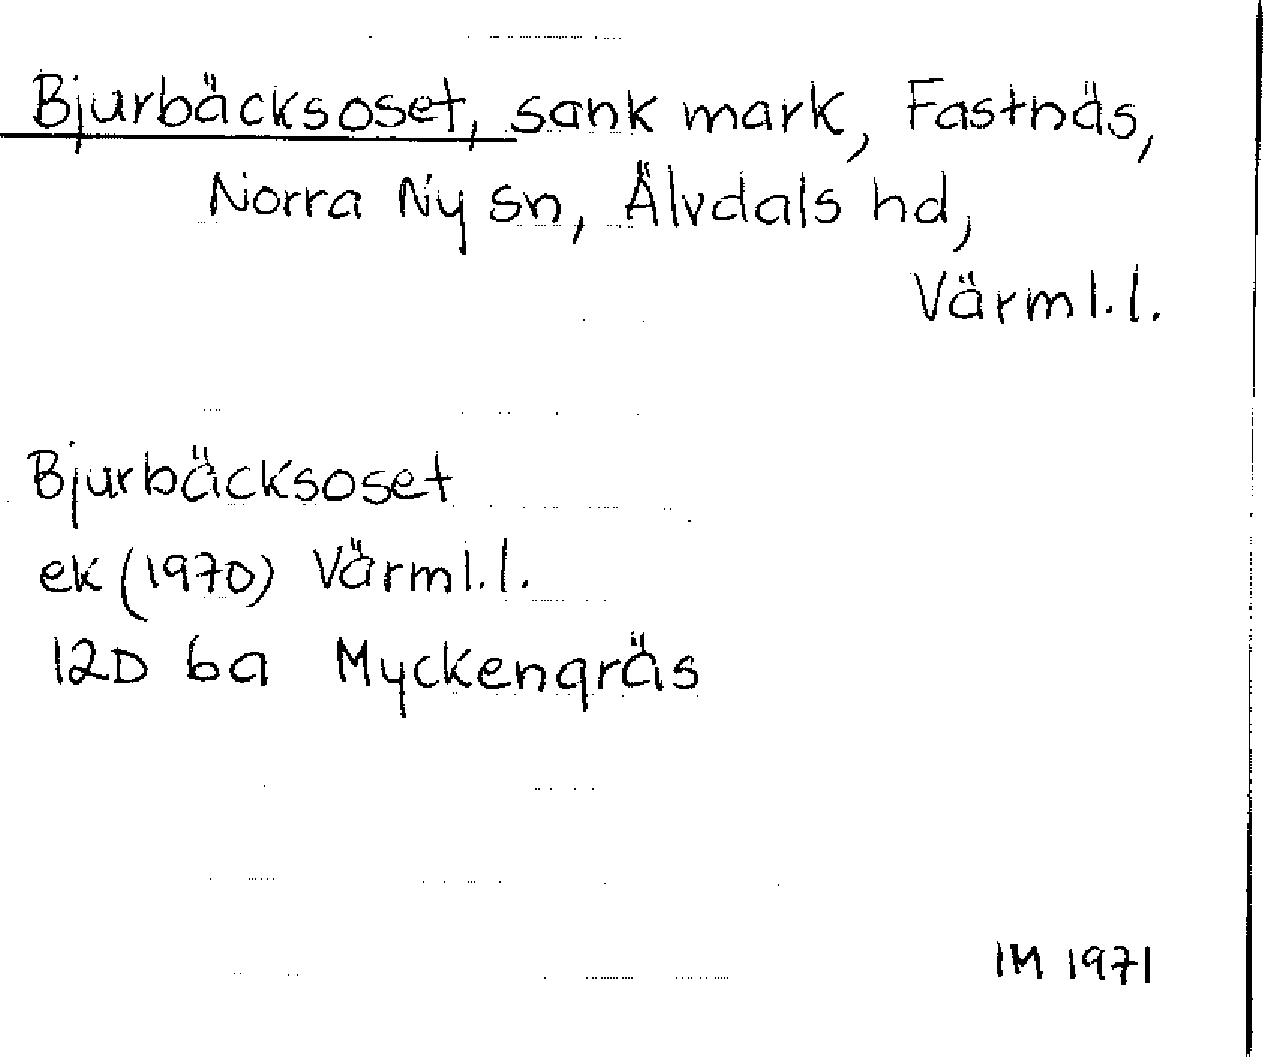 Bjurbäcksoset, sank mark, Fastnäs,
Norra Ny sn, Älvdals hd,
Värml.l.
Bjurbäcksoset
ek (1970) Värml.l.
12D 6a Myckengräs
IM 1971